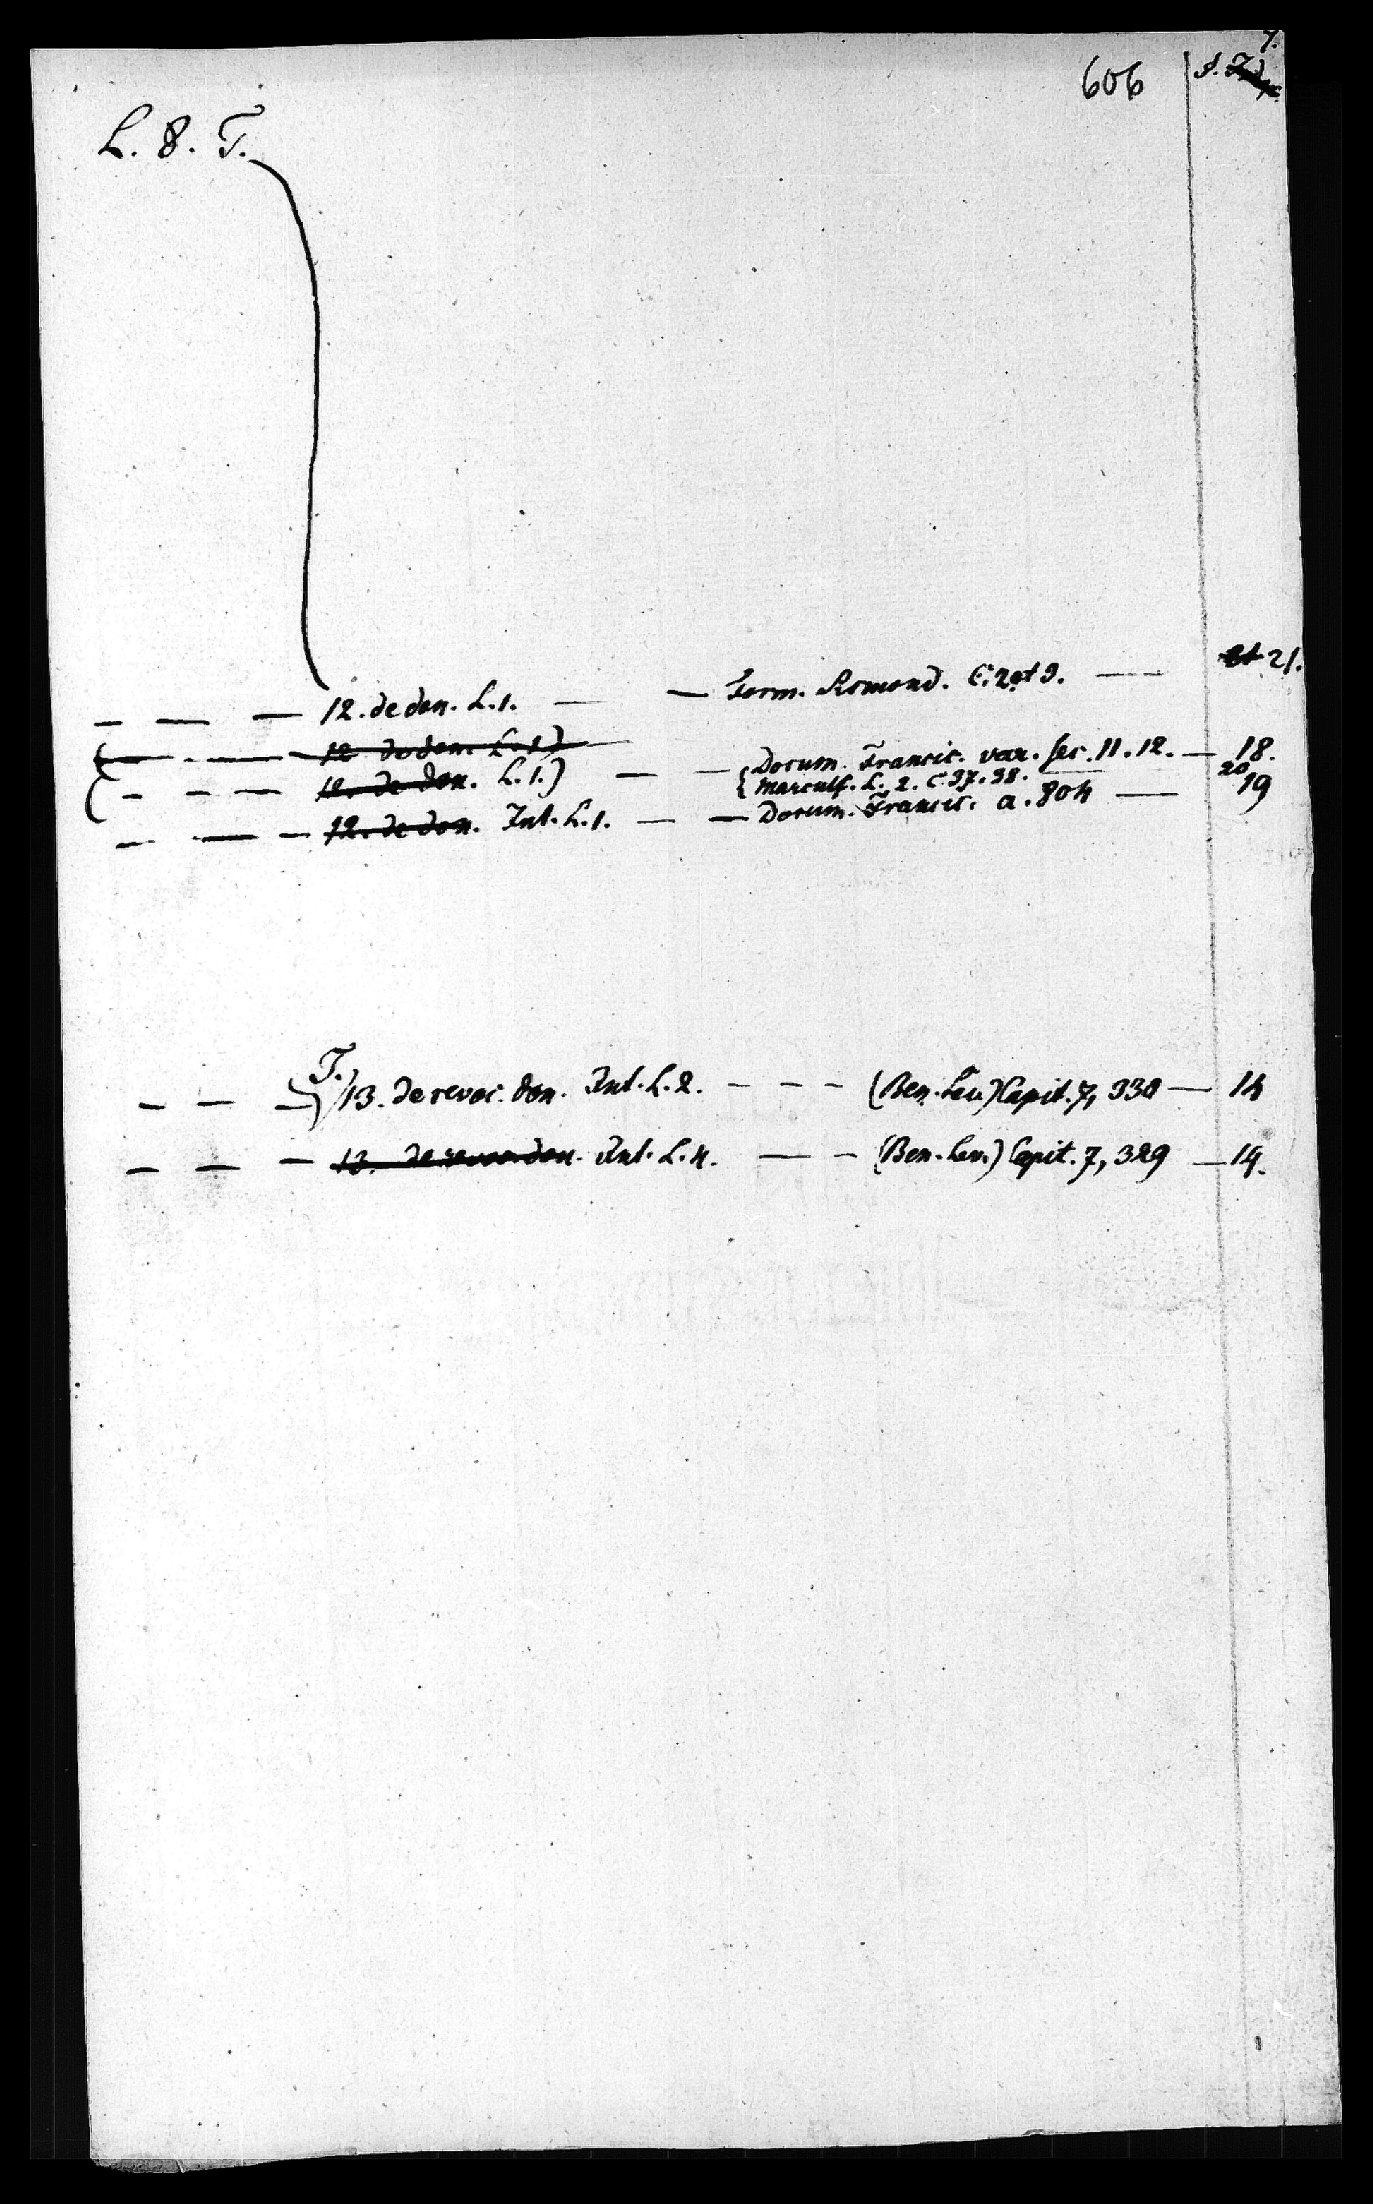 7.
606
L. 8. T.
— — — 12. de don. L. 1. — — Form. Sirmond. C. 2 et 3. — — 21.
— — — 12 de don. L. 1.)
— — — 12. de don. L. 1.) — — Docum. Francic. var. sec. 11. 12. — 18.
Marculf. L. 2. C. 37. 38. — 20
— — — 12. de don. Int. L. 1. — — Docum. Francic. a. 804 — 19
T.
— — — 13. de revoc. don. Int. L. 2. — — — (Ben. Lev.) Capit. 7, 330 — 14
— — — 13. de revoc. don. Int. L. 4. — — (Ben. Lev.) Capit. 7, 329 — 14.